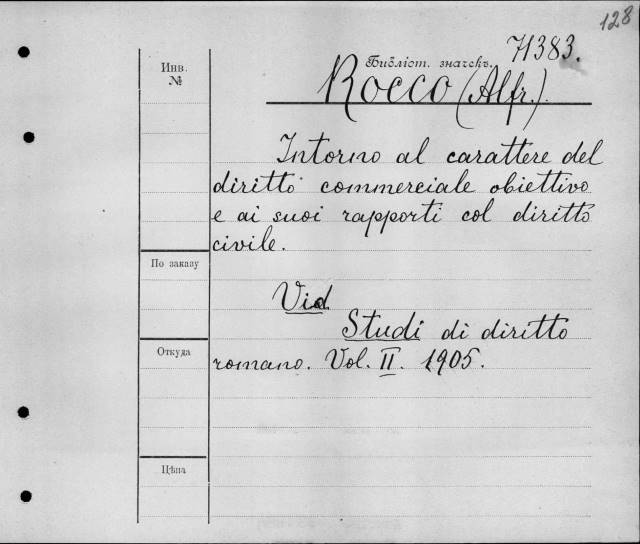 128
71383.
Библіот. значекъ.
Инв.
№
Rocco (Alfr.).
Intorno al carattere del
diritto commerciale obiettivo
e ai suoi rapporti col diritto
civile.
По заказу
Vid.
Studi di diritto
Откуда
romano. Vol. II. 1905.
Цѣна